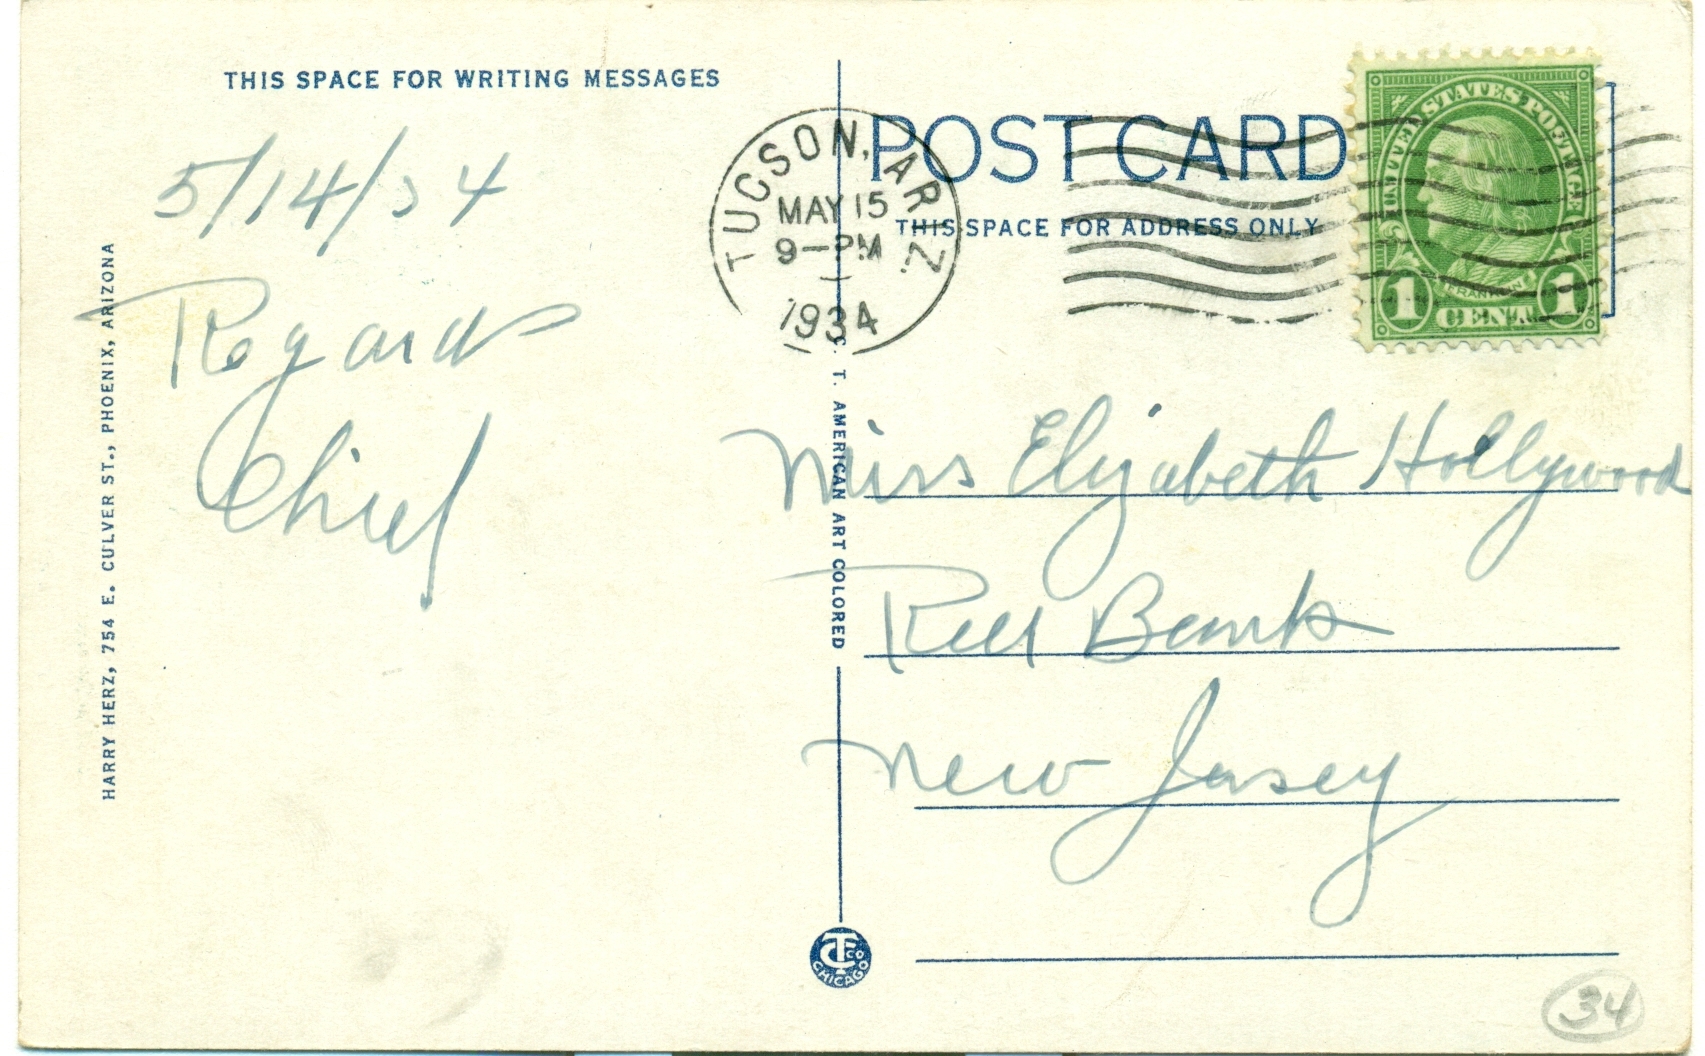 THIS SPACE FOR WRITING MESSAGES
5/14/34
Regards
Chief
HARRY HERZ, 754 E. CULVER ST., PHOENIX, ARIZONA
TUCSON, ARIZ.
MAY 15
9—PM
1934
POST CARD
THIS SPACE FOR ADDRESS ONLY
UNITED STATES POSTAGE
FRANKLIN
1 CENT 1
C. T. AMERICAN ART COLORED
Miss Elizabeth Hollywood
Red Bank
New Jersey
CTCO
CHICAGO
34